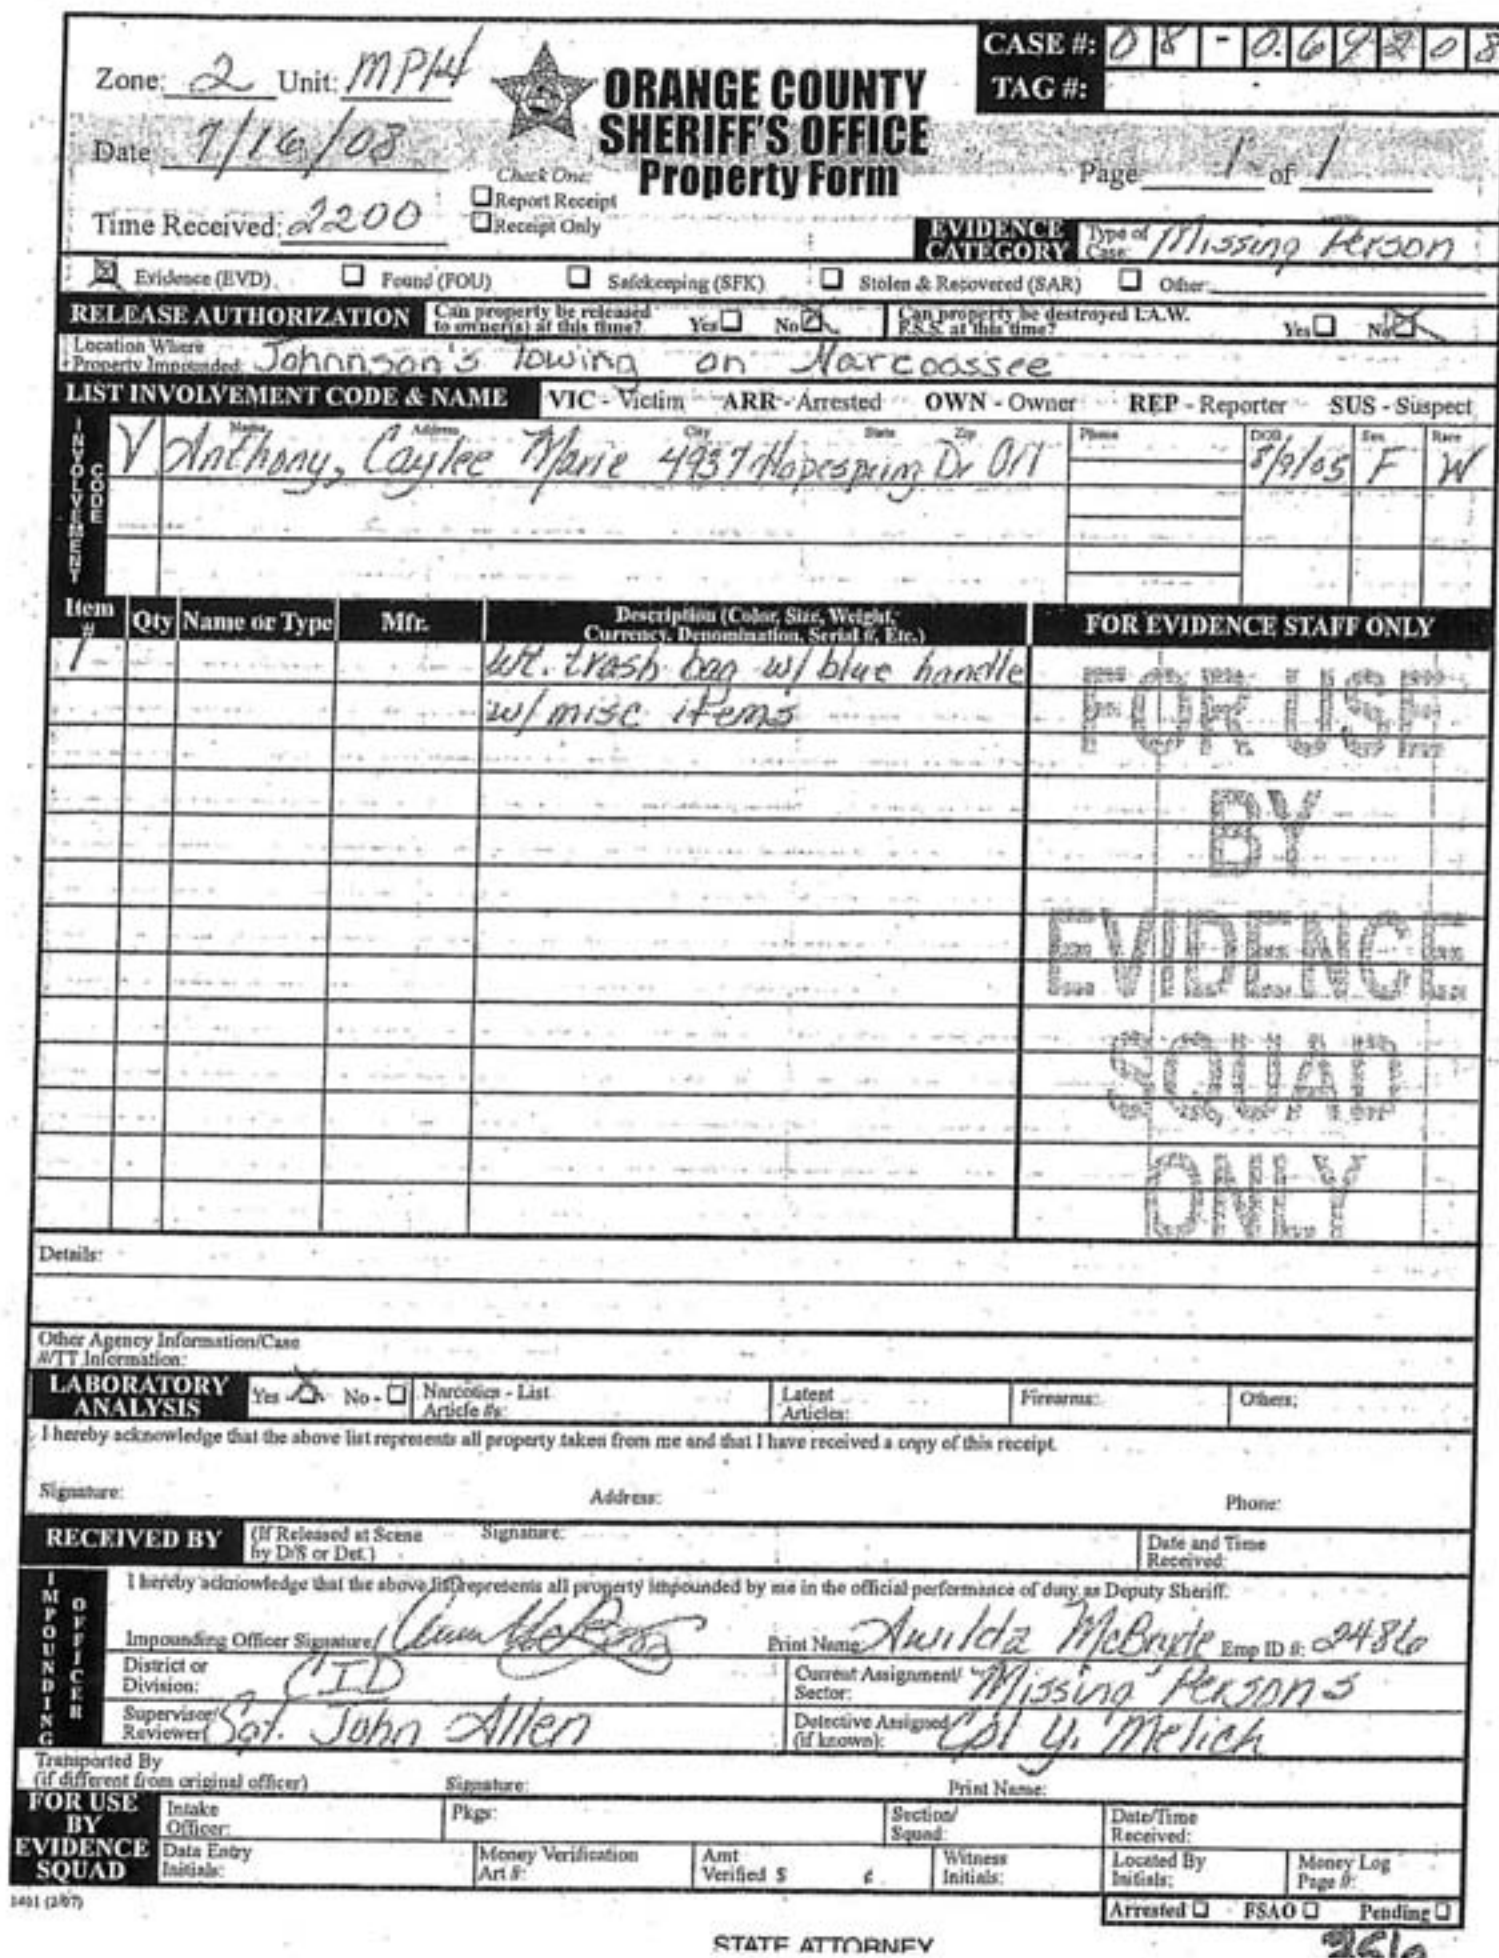 CASE #: 08-069208
Zone: 2 Unit: MPH
ORANGE COUNTY
SHERIFF'S OFFICE
Property Form
TAG #:
Date 7/16/08
Page 1 of 1
Check One:
Report Receipt
Receipt Only
Time Received: 2200
EVIDENCE CATEGORY Type of Case: Missing Person
Evidence (EVD) Found (FOU) Safekeeping (SFK) Stolen & Recovered (SAR) Other:
RELEASE AUTHORIZATION Can property be released to owner(s) at this time? Yes No Can property be destroyed I.A.W. F.S.S. at this time? Yes No
Location Where Property Impounded: Johnnson's Towing on Narcoassee
LIST INVOLVEMENT CODE & NAME VIC - Victim ARR - Arrested OWN - Owner REP - Reporter SUS - Suspect
INVOLVEMENT CODE
Name Address City State Zip Phone DOB Sex Race
V Anthony, Caylee Marie 4937 Hopespring Dr Orl 8/9/05 F W
Item # Qty Name or Type Mfr. Description (Color, Size, Weight, Currency, Denomination, Serial #, Etc.) FOR EVIDENCE STAFF ONLY
1 wt. trash bag w/ blue handle
w/ misc items
FOR USE
BY
EVIDENCE
SQUAD
ONLY
Details:
Other Agency Information/Case
#/TT Information:
LABORATORY ANALYSIS Yes - No - Narcotics - List Article #s: Latent Articles: Firearms: Others:
I hereby acknowledge that the above list represents all property taken from me and that I have received a copy of this receipt.
Signature: Address: Phone:
RECEIVED BY (If Released at Scene by D/S or Det.) Signature: Date and Time Received:
IMPOUNDING OFFICER
I hereby acknowledge that the above list represents all property impounded by me in the official performance of duty as Deputy Sheriff.
Impounding Officer Signature Print Name: Awilda McBryde Emp ID #: 2486
District or Division: CID Current Assignment/ Sector: Missing Persons
Supervisor/ Reviewer Sgt. John Allen Detective Assigned (if known): Cpl Y. Melich
Transported By
(if different from original officer) Signature: Print Name:
FOR USE BY EVIDENCE SQUAD
Intake Officer: Pkgs: Section/ Squad: Date/Time Received:
Data Entry Initials: Money Verification Art #: Amt Verified $ ¢ Witness Initials: Located By Initials: Money Log Page #:
1401 (2/07)
Arrested FSAO Pending
STATE ATTORNEY